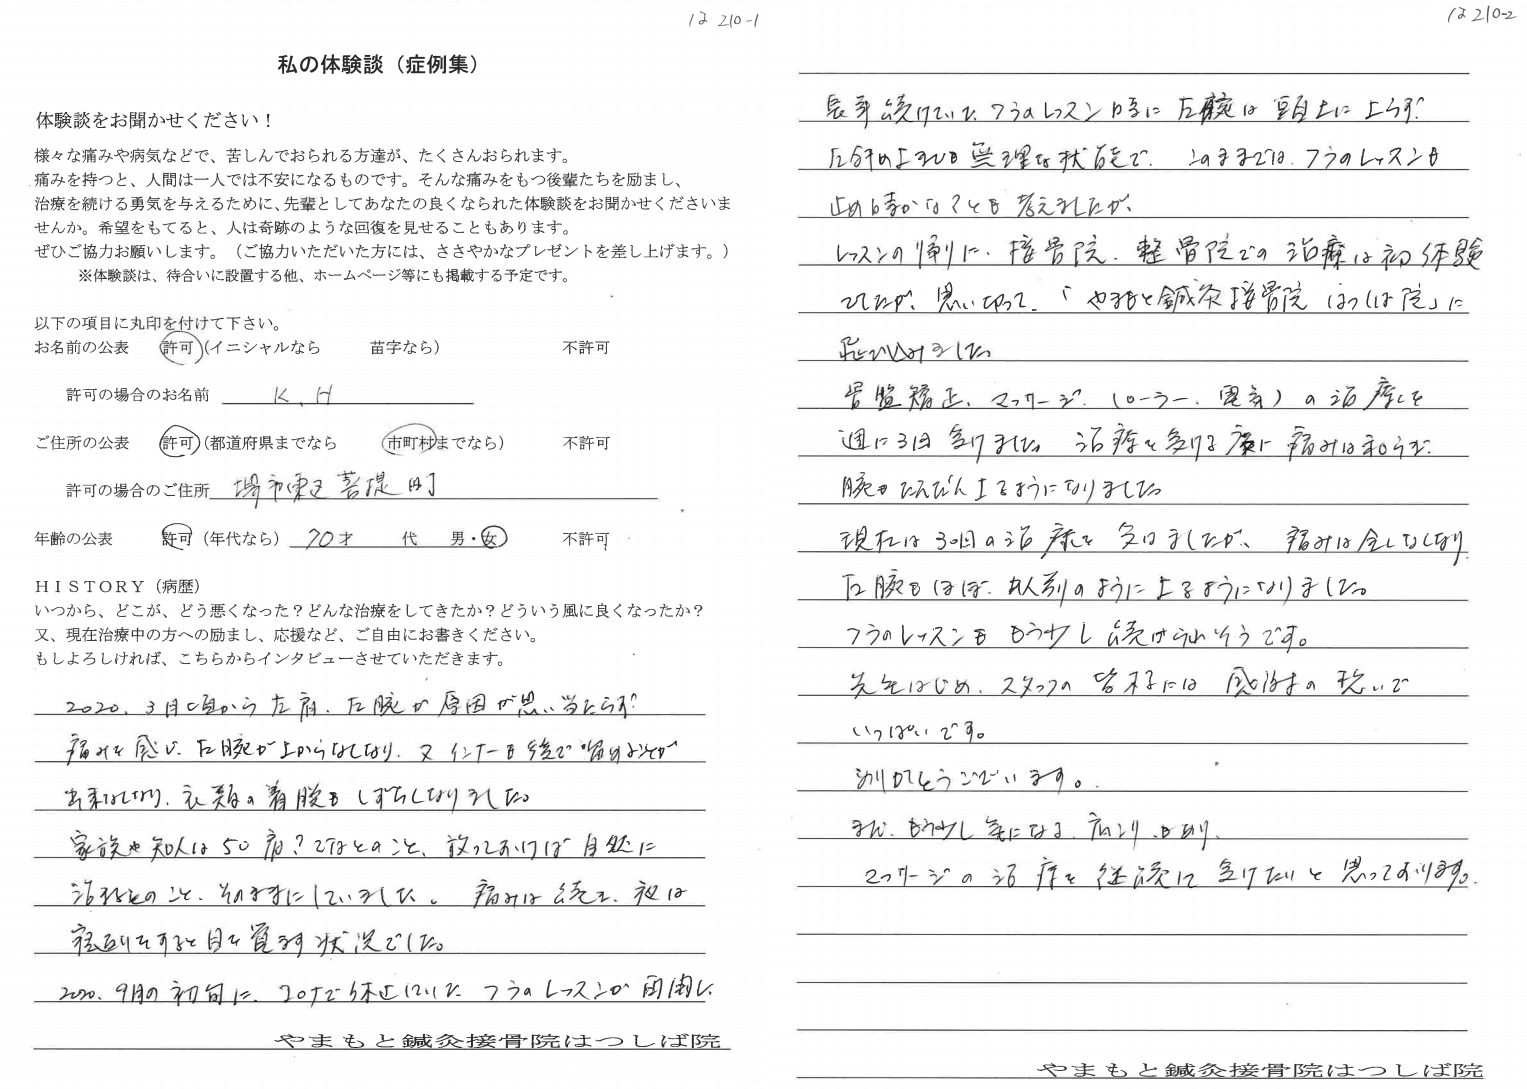 は210-1
私の体験談（症例集）
体験談をお聞かせください！
様々な痛みや病気などで、苦しんでおられる方達が、たくさんおられます。
痛みを持つと、人間は一人では不安になるものです。そんな痛みをもつ後輩たちを励まし、
治療を続ける勇気を与えるために、先輩としてあなたの良くなられた体験談をお聞かせくださいま
せんか。希望をもてると、人は奇跡のような回復を見せることもあります。
ぜひご協力お願いします。（ご協力いただいた方には、ささやかなプレゼントを差し上げます。）
※体験談は、待合いに設置する他、ホームページ等にも掲載する予定です。
以下の項目に丸印を付けて下さい。
お名前の公表 許可（イニシャルなら 苗字なら） 不許可
許可の場合のお名前 K.H
ご住所の公表 許可（都道府県までなら 市町村までなら） 不許可
許可の場合のご住所 堺市東区菩提町
年齢の公表 許可（年代なら） 70才 代 男・女 不許可
ＨＩＳＴＯＲＹ（病歴）
いつから、どこが、どう悪くなった？どんな治療をしてきたか？どういう風に良くなったか？
又、現在治療中の方への励まし、応援など、ご自由にお書きください。
もしよろしければ、こちらからインタビューさせていただきます。
2020.3月頃から左肩、左腕が原因が思い当たらず
痛みを感じ、左腕が上がらなくなり、又インナーも後で留めることが
出来なくなり、衣類の着脱もしずらくなりました。
家族や知人は50肩？ではとのこと、放っておけば自然に
治るとのこと、そのままにしていました。痛みは続き、夜は
寝返りをすると目を覚ます状況でした。
2020.9月の初旬に、コロナで休止していたフラのレッスンが再開し
やまもと鍼灸接骨院はつしば院
は210-2
長年続けていたフラのレッスン時に左腕は頭上に上らず
左斜め上すらも無理な状態で、このままではフラのレッスンも
止め時かな？とも考えましたが、
レッスンの帰りに、接骨院、整骨院での治療は初体験
でしたが、思い切って、「やまもと鍼灸接骨院はつしば院」に
飛び込みました。
骨盤矯正、マッサージ、（ローラー、電気）の治療を
週に3回受けました。治療を受ける度に痛みは和らぎ
腕もだんだん上るようになりました。
現在は30回の治療を受けましたが、痛みは全くなくなり
左腕もほぼ、人並のように上るようになりました。
フラのレッスンももう少し続けられそうです。
先生はじめ、スタッフの皆様には感謝の想いで
いっぱいです。
ありがとうございます。
まだ、もう少し気になる、肩こりもあり、
マッサージの治療を継続して受けたいと思っております。
やまもと鍼灸接骨院はつしば院